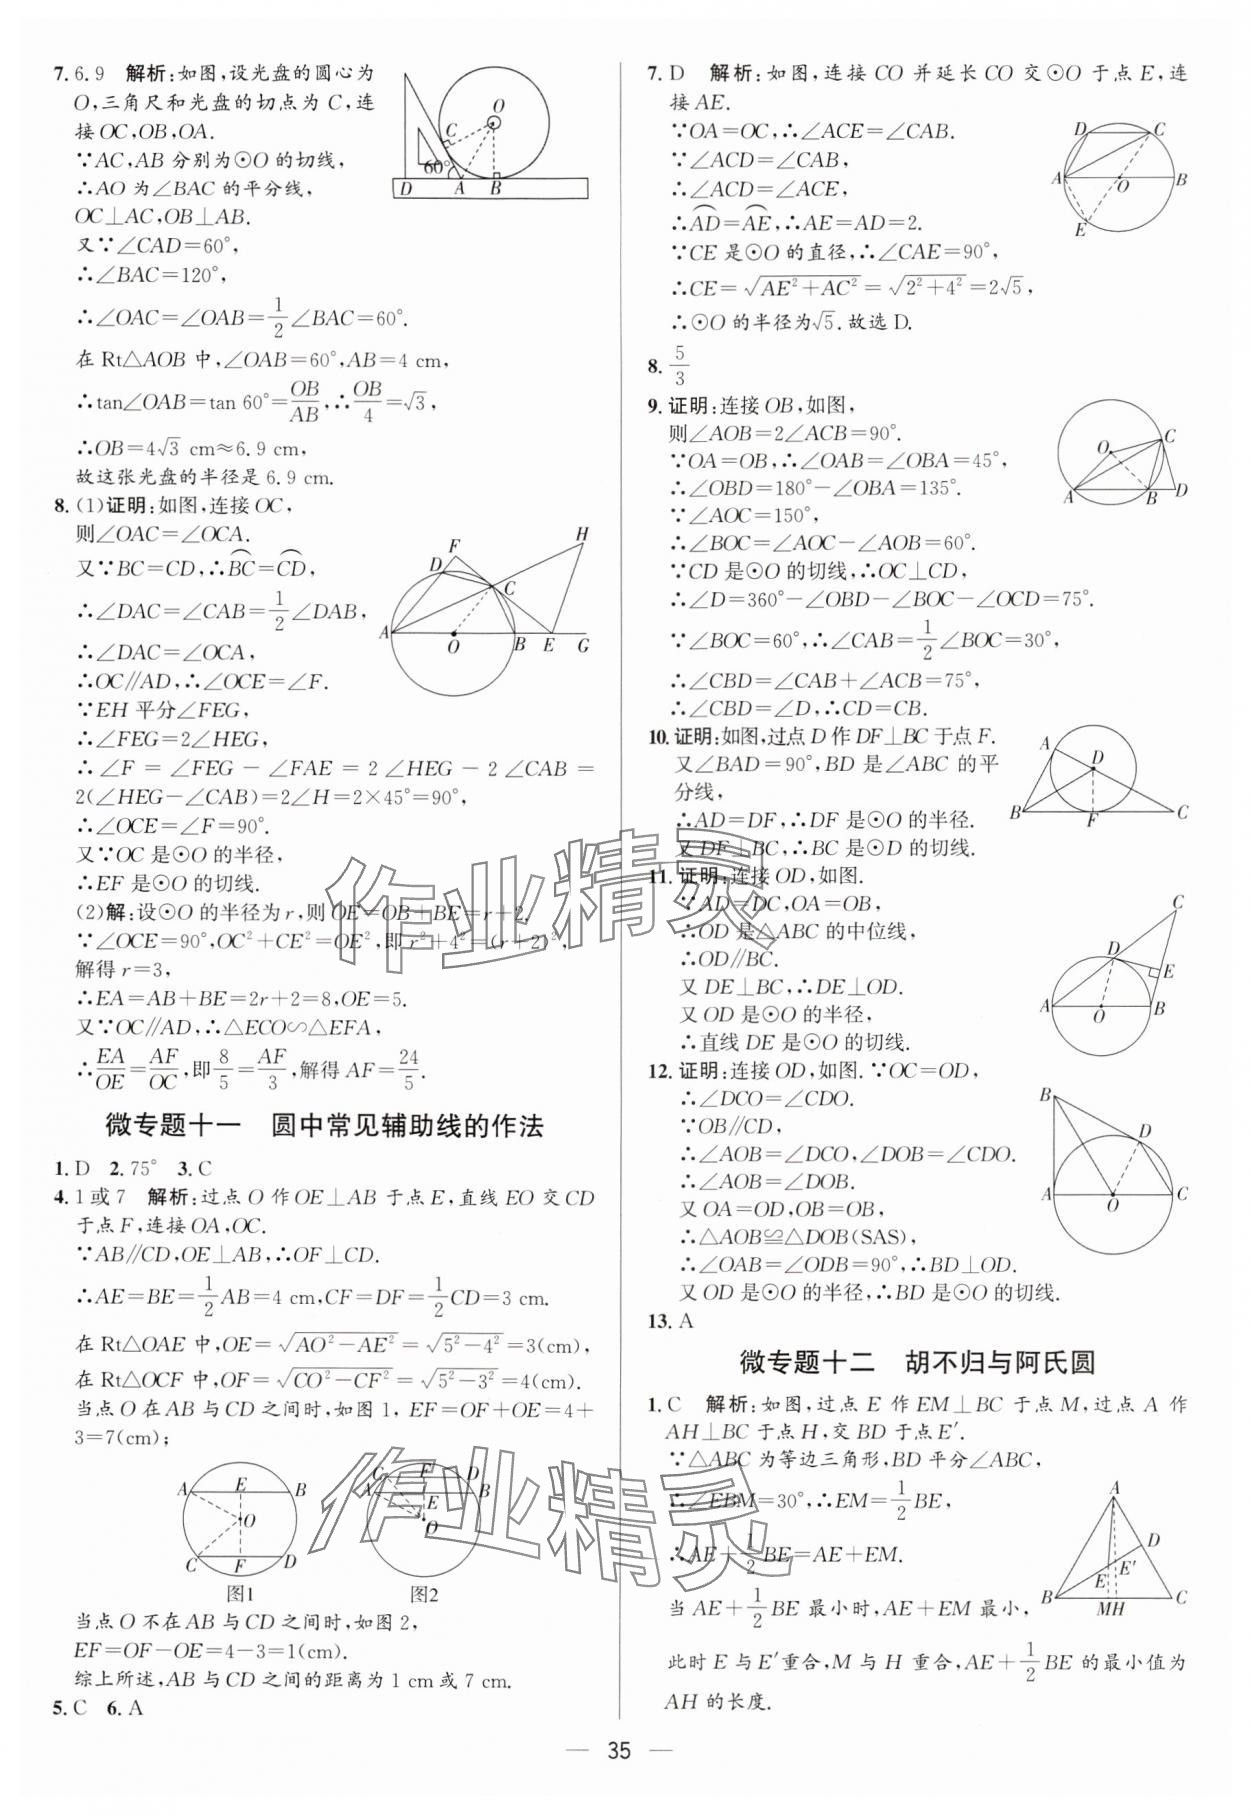 7. 6.9　解析:如图,设光盘的圆心为
O,三角尺和光盘的切点为 C,连
接OC,OB,OA.
∵AC,AB 分别为⊙O 的切线,
∴AO 为∠BAC 的平分线,
OC⊥AC,OB⊥AB.
又∵∠CAD=60°,
∴∠BAC=120°,
∴∠OAC=∠OAB=1/2∠BAC=60°.
在 Rt△AOB 中,∠OAB=60°,AB=4 cm,
∴tan∠OAB=tan 60°=OB/AB,∴OB/4=√3,
∴OB=4√3 cm≈6.9 cm.
故这张光盘的半径是 6.9 cm.
O
C
60°
D A B
8. (1)证明:如图,连接 OC,
则∠OAC=∠OCA.
又∵BC=CD,∴⌒BC=⌒CD,
∴∠DAC=∠CAB=1/2∠DAB,
∴∠DAC=∠OCA,
∴OC∥AD,∴∠OCE=∠F.
∵EH 平分∠FEG,
∴∠FEG=2∠HEG,
∴∠F = ∠FEG − ∠FAE = 2∠HEG − 2∠CAB =
2(∠HEG−∠CAB)=2∠H=2×45°=90°,
∴∠OCE=∠F=90°.
又∵OC 是⊙O 的半径,
∴EF 是⊙O 的切线.
(2)解:设⊙O 的半径为 r,则 OE=OB+BE=r+2.
∵∠OCE=90°,OC²+CE²=OE²,即 r²+4²=(r+2)²,
解得 r=3,
∴EA=AB+BE=2r+2=8,OE=5.
又∵OC∥AD,∴△ECO∽△EFA,
∴EA/OE=AF/OC,即8/5=AF/3,解得 AF=24/5.
H
F
D
C
A
O B E G
微专题十一　圆中常见辅助线的作法
1. D　2. 75°　3. C
4. 1 或 7　解析:过点 O 作 OE⊥AB 于点 E,直线 EO 交 CD
于点 F,连接 OA,OC.
∵AB∥CD,OE⊥AB,∴OF⊥CD.
∴AE=BE=1/2AB=4 cm,CF=DF=1/2CD=3 cm.
在 Rt△OAE 中,OE=√(AO²−AE²)=√(5²−4²)=3(cm)
在 Rt△OCF 中,OF=√(CO²−CF²)=√(5²−3²)=4(cm).
当点 O 在 AB 与 CD 之间时,如图 1, EF=OF+OE=4+
3=7(cm);
A E B
O
C F D
图1
C F D
A E B
O
图2
当点 O 不在 AB 与 CD 之间时,如图 2,
EF=OF−OE=4−3=1(cm).
综上所述,AB 与 CD 之间的距离为 1 cm 或 7 cm.
5. C　6. A
7. D　解析:如图,连接 CO 并延长 CO 交⊙O 于点 E,连
接 AE.
∵OA=OC,∴∠ACE=∠CAB.
∵∠ACD=∠CAB,
∴∠ACD=∠ACE,
∴⌒AD=⌒AE,∴AE=AD=2.
∵CE 是⊙O 的直径,∴∠CAE=90°,
∴CE=√(AE²+AC²)=√(2²+4²)=2√5,
∴⊙O 的半径为√5.故选 D.
D C
A O B
E
8. 5/3
9. 证明:连接 OB,如图,
则∠AOB=2∠ACB=90°.
∵OA=OB,∴∠OAB=∠OBA=45°,
∴∠OBD=180°−∠OBA=135°.
∵∠AOC=150°,
∴∠BOC=∠AOC−∠AOB=60°.
∵CD 是⊙O 的切线,∴OC⊥CD,
∴∠D=360°−∠OBD−∠BOC−∠OCD=75°.
∵∠BOC=60°,∴∠CAB=1/2∠BOC=30°,
∴∠CBD=∠CAB+∠ACB=75°,
∴∠CBD=∠D,∴CD=CB.
O C
A B D
10. 证明:如图,过点 D 作 DF⊥BC 于点 F.
又∠BAD=90°,BD 是∠ABC 的平
分线,
∴AD=DF,∴DF 是⊙O 的半径.
又 DF⊥BC,∴BC 是⊙D 的切线.
A
D
B F C
11. 证明:连接 OD,如图.
∵AD=DC,OA=OB,
∴OD 是△ABC 的中位线,
∴OD∥BC.
又 DE⊥BC,∴DE⊥OD.
又 OD 是⊙O 的半径,
∴直线 DE 是⊙O 的切线.
C
D
E
A O B
12. 证明:连接 OD,如图.∵OC=OD,
∴∠DCO=∠CDO.
∵OB∥CD,
∴∠AOB=∠DCO,∠DOB=∠CDO.
∴∠AOB=∠DOB.
又 OA=OD,OB=OB,
∴△AOB≌△DOB(SAS),
∴∠OAB=∠ODB=90°,∴BD⊥OD.
又 OD 是⊙O 的半径,∴BD 是⊙O 的切线.
B
D
A O C
13. A
微专题十二　胡不归与阿氏圆
1. C　解析:如图,过点 E 作 EM⊥BC 于点 M,过点 A 作
AH⊥BC 于点 H,交 BD 于点 E′.
∵△ABC 为等边三角形,BD 平分∠ABC,
∴∠EBM=30°,∴EM=1/2BE,
∴AE+1/2BE=AE+EM.
当 AE+1/2BE 最小时,AE+EM 最小,
此时 E 与 E′重合,M 与 H 重合,AE+1/2BE 的最小值为
AH 的长度.
A
D
E E′
B MH C
作业精灵
作业精灵
— 35 —